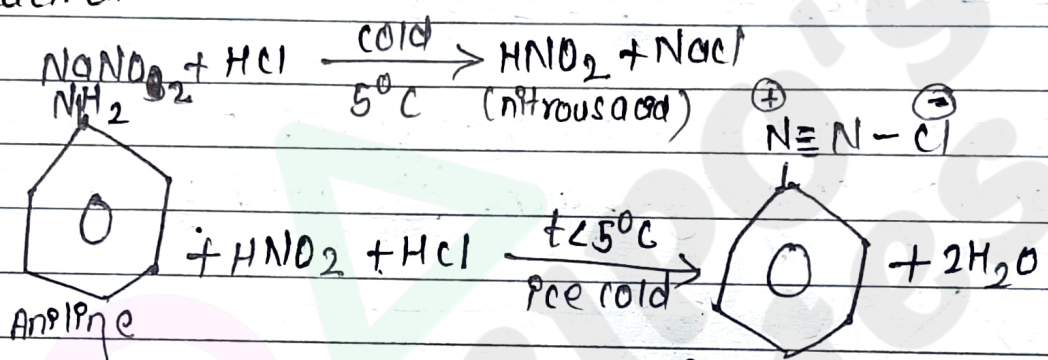 NaNO2 + HCl cold 5°C → HNO2 + NaCl
(nitrous acid)
NH2
⊕ ⊖
N≡N-Cl
+ HNO2 + HCl t<5°C ice cold → + 2H2O
Aniline